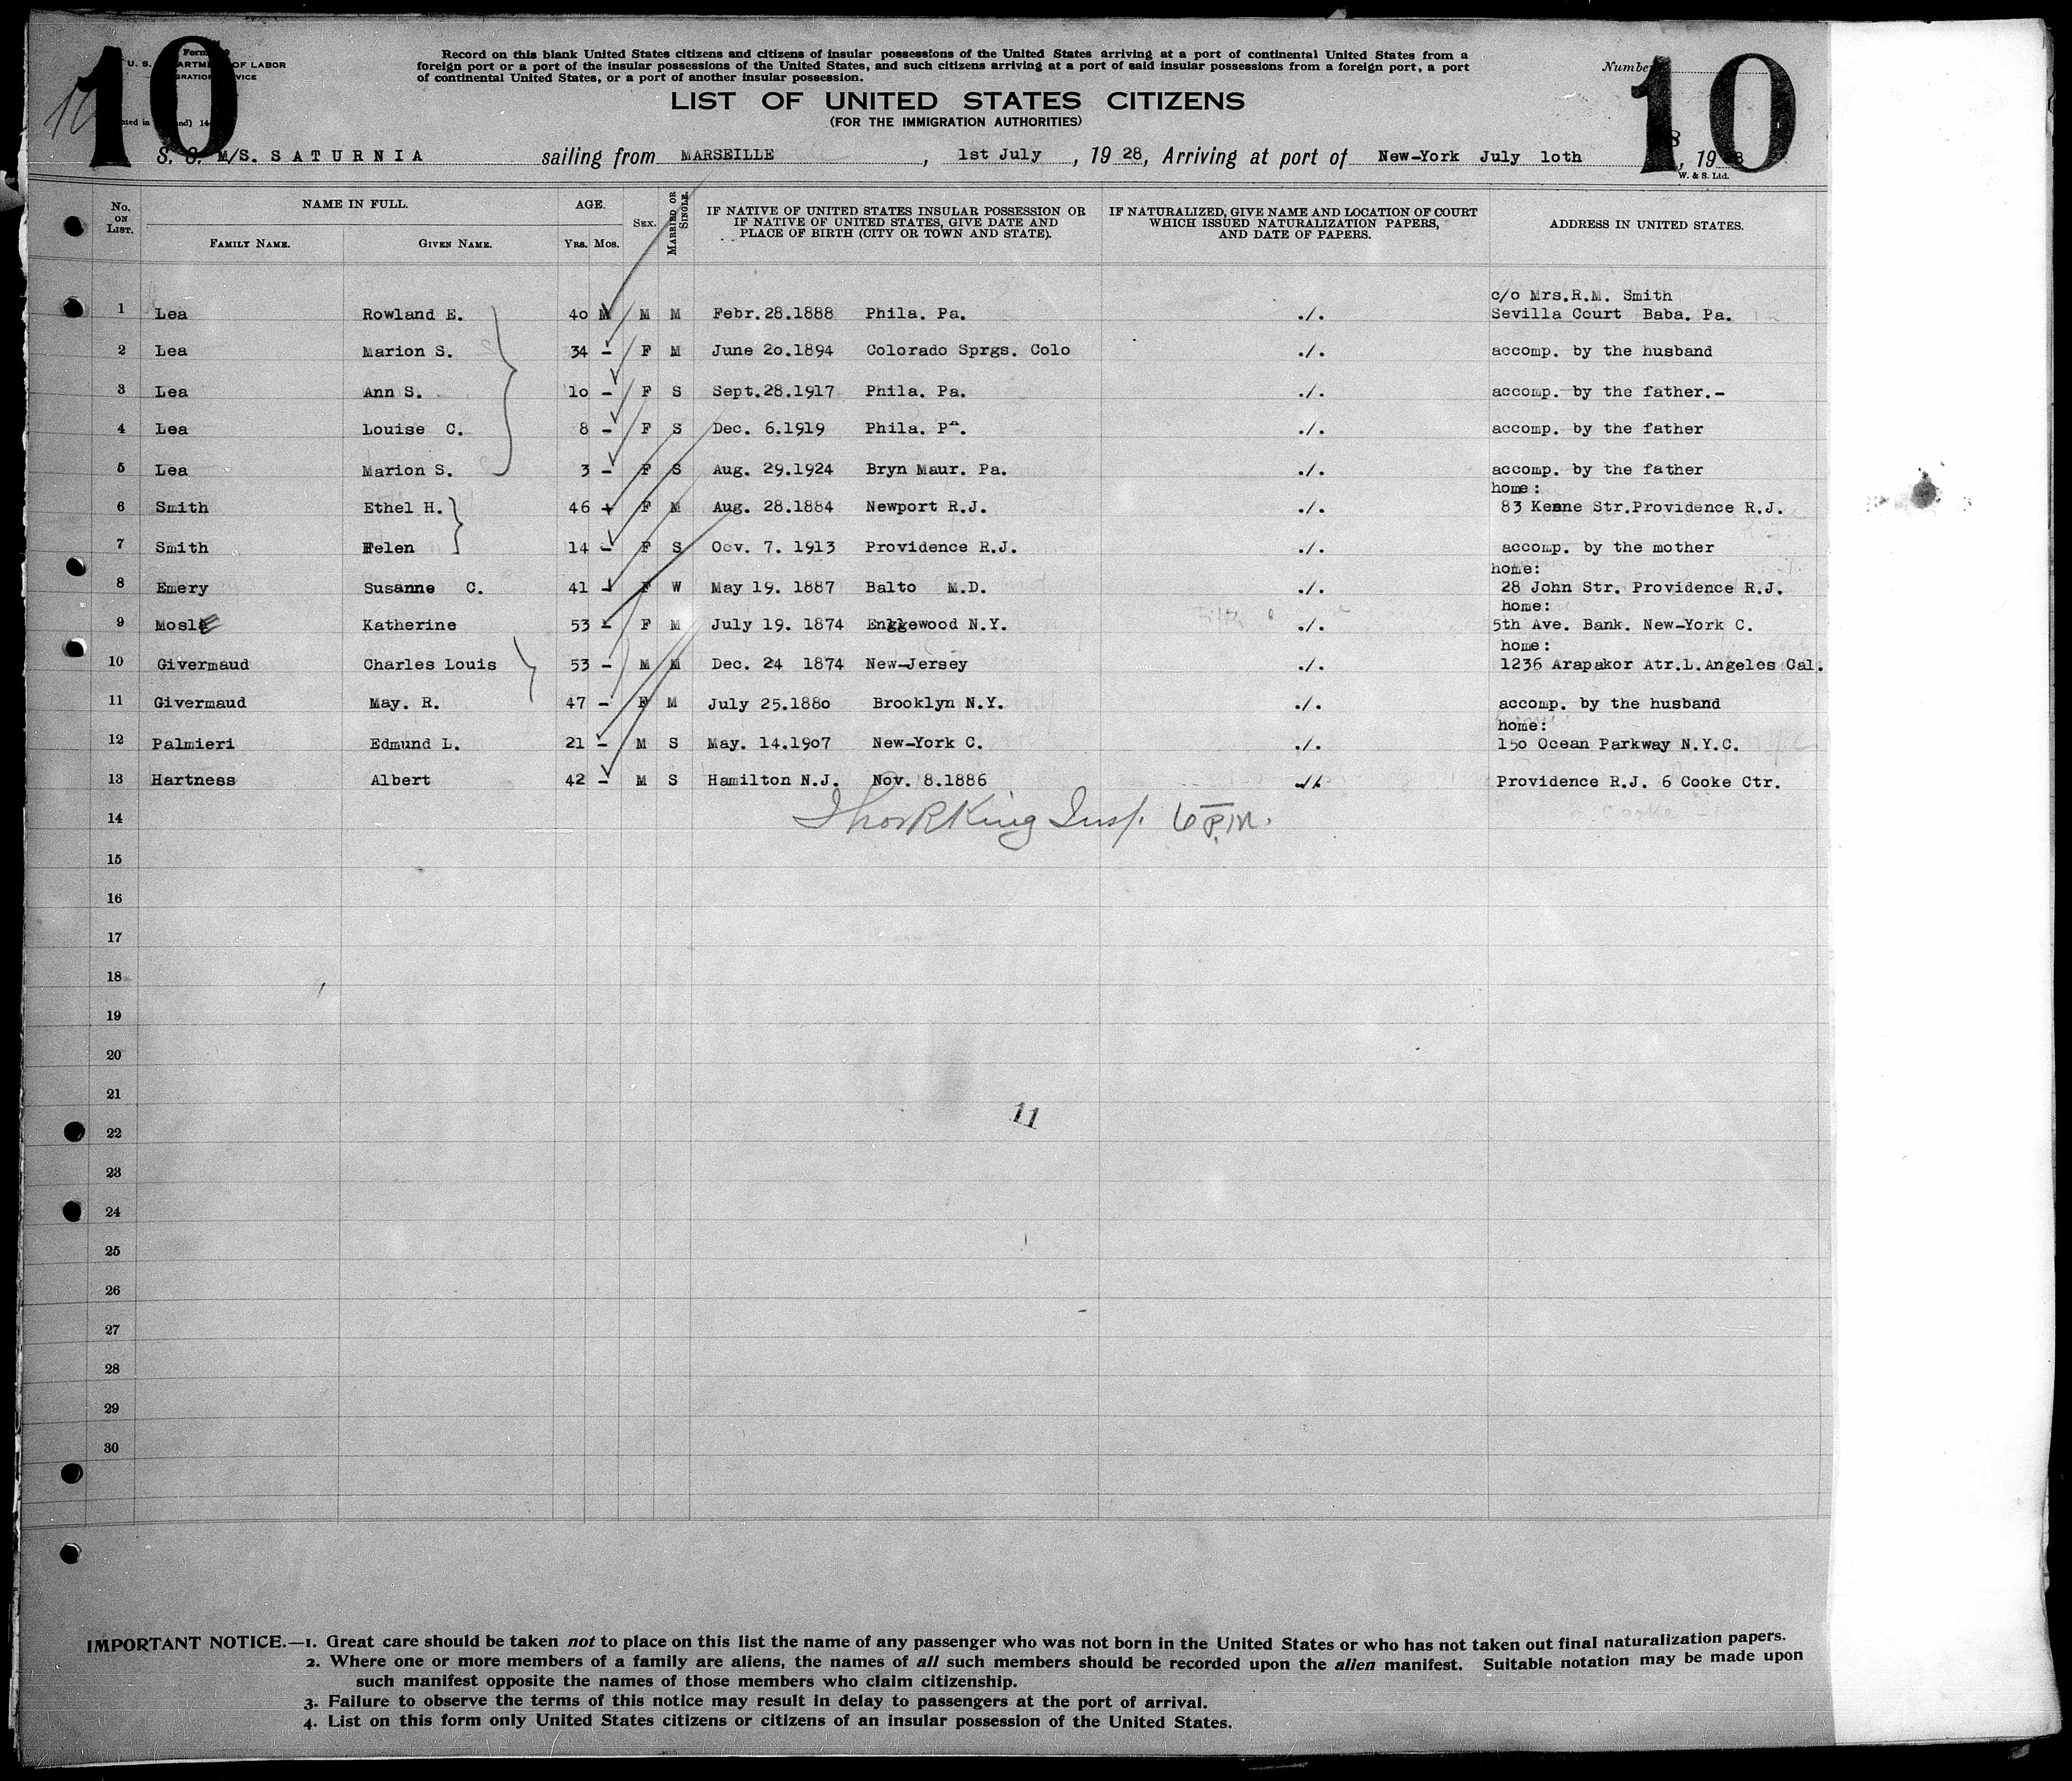 10
10
Form
U. S. DEPARTMENT OF LABOR
Number
Record on this blank United States citizens and citizens of insular possessions of the United States arriving at a port of continental United States from a
foreign port or a port of the insular possessions of the United States, and such citizens arriving at a port of said insular possessions from a foreign port, a port
of continental United States, or a port of another insular possession.
LIST OF UNITED STATES CITIZENS
(FOR THE IMMIGRATION AUTHORITIES)
S. S. M/S. SATURNIA sailing from MARSEILLE, 1st July, 1928, Arriving at port of New-York July 1oth, 1928
W. & S. Ltd.
No. ON LIST. NAME IN FULL. FAMILY NAME. GIVEN NAME. AGE. YRS. MOS. SEX. MARRIED OR SINGLE. IF NATIVE OF UNITED STATES INSULAR POSSESSION OR IF NATIVE OF UNITED STATES, GIVE DATE AND PLACE OF BIRTH (CITY OR TOWN AND STATE). IF NATURALIZED, GIVE NAME AND LOCATION OF COURT WHICH ISSUED NATURALIZATION PAPERS, AND DATE OF PAPERS. ADDRESS IN UNITED STATES.
c/o Mrs.R.M. Smith
1 Lea Rowland E. 4o M M M Febr.28.1888 Phila. Pa. ./. Sevilla Court Baba. Pa.
2 Lea Marion S. 34 - F M June 2o.1894 Colorado Sprgs. Colo ./. accomp. by the husband
3 Lea Ann S. 1o - F S Sept.28.1917 Phila. Pa. ./. accomp. by the father.-
4 Lea Louise C. 8 - F S Dec. 6.1919 Phila. Pa. ./. accomp. by the father
5 Lea Marion S. 3 - F S Aug. 29.1924 Bryn Maur. Pa. ./. accomp. by the father
home:
6 Smith Ethel H. 46 - F M Aug. 28.1884 Newport R.J. ./. 83 Keene Str.Providence R.J.
7 Smith Helen 14 - F S Ocv. 7. 1913 Providence R.J. ./. accomp. by the mother
home:
8 Emery Susanne C. 41 - F W May 19. 1887 Balto M.D. ./. 28 John Str. Providence R.J.
home:
9 Mosle Katherine 53 - F M July 19. 1874 Englewood N.Y. ./. 5th Ave. Bank. New-York C.
home:
10 Givermaud Charles Louis 53 - M M Dec. 24 1874 New-Jersey ./. 1236 Arapakor Atr.L.Angeles Cal.
11 Givermaud May. R. 47 - F M July 25.188o Brooklyn N.Y. ./. accomp. by the husband
home:
12 Palmieri Edmund L. 21 - M S May. 14.19o7 New-York C. ./. 15o Ocean Parkway N.Y.C.
13 Hartness Albert 42 - M S Hamilton N.J. Nov. 8.1886 ./. Providence R.J. 6 Cooke Ctr.
14 King Insp. 6 P.M.
15
16
17
18
19
20
21
11
22
23
24
25
26
27
28
29
30
IMPORTANT NOTICE.—1. Great care should be taken not to place on this list the name of any passenger who was not born in the United States or who has not taken out final naturalization papers.
2. Where one or more members of a family are aliens, the names of all such members should be recorded upon the alien manifest. Suitable notation may be made upon
such manifest opposite the names of those members who claim citizenship.
3. Failure to observe the terms of this notice may result in delay to passengers at the port of arrival.
4. List on this form only United States citizens or citizens of an insular possession of the United States.